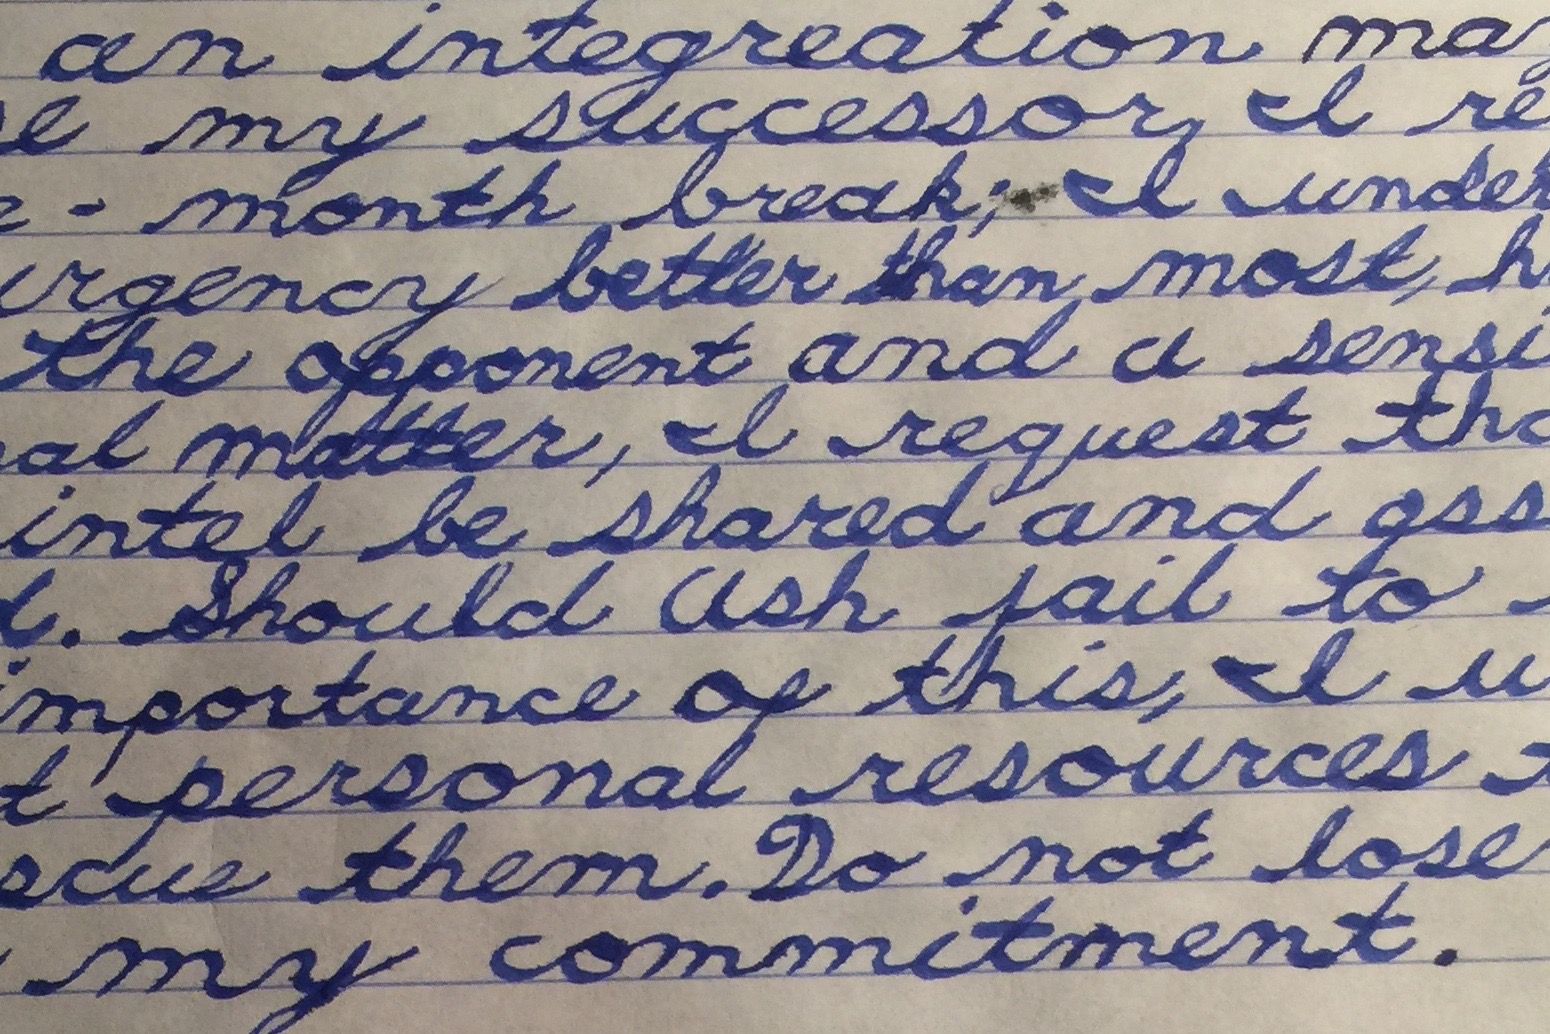 an integreation ma
my successor, I re
- month break; I under
urgency better than most, h
the opponent and a sensi
al matter, I request tha
intel be shared and ass
d. Should Ash fail to
importance of this, I u
t personal resources
scue them. Do not lose
my commitment.